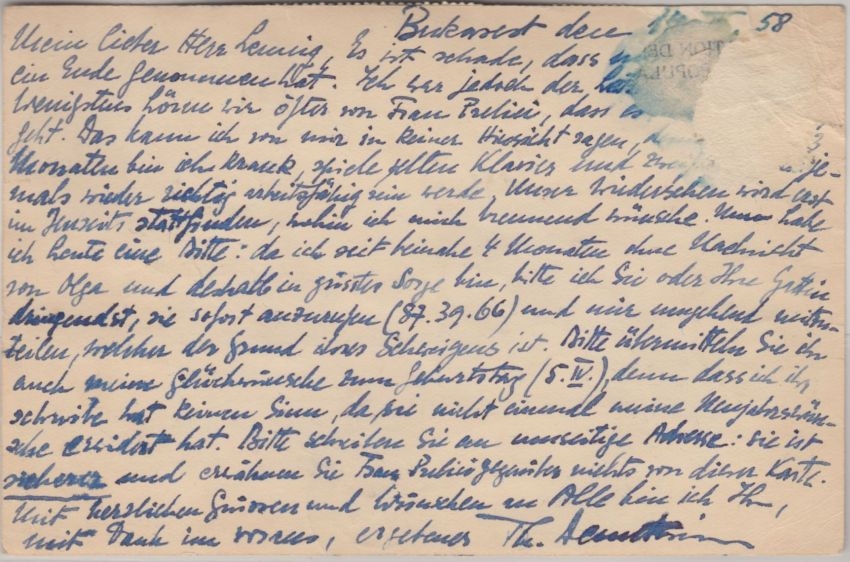 Bukarest den 58
Mein lieber Herr Lennig, Es ist schade, dass
ein Ende genommen hat. Ich war jedoch der
TION DE
OPULA
wenigstens hören wir öfter von Frau Prelici, dass es
geht. Das kann ich von mir in keiner Hinsicht sagen, 3
Monaten bin ich krank, spiele selten Klavier und je-
mals wieder richtig arbeitsfähig sein werde, Unser Wiedersehen wird erst
im Jenseits stattfinden, wohin ich mich brennend wünsche. Nun habe
ich heute eine Bitte: da ich seit beinahe 4 Monaten ohne Nachricht
von Olga und deshalb in grösster Sorge bin, bitte ich Sie oder Ihre Gattin
dringendst, sie sofort anzurufen (87.39.66) und mir umgehend mitzu-
teilen, welcher der Grund ihres Schweigens ist. Bitte übermitteln Sie ihr
auch meine Glückwünsche zum Geburtstag (5.IV.), denn dass ich ihr
schreibe hat keinen Sinn, da sie nicht einmal meine Neujahrswün-
sche erwidert hat. Bitte schreiben Sie an umseitige Adresse: sie ist
sicherer und erwähnen Sie Frau Prelici gegenüber nichts von dieser Karte.
Mit herzlichen Grüssen und Wünschen an Alle bin ich Ihr,
mit Dank im voraus, ergebener Th.